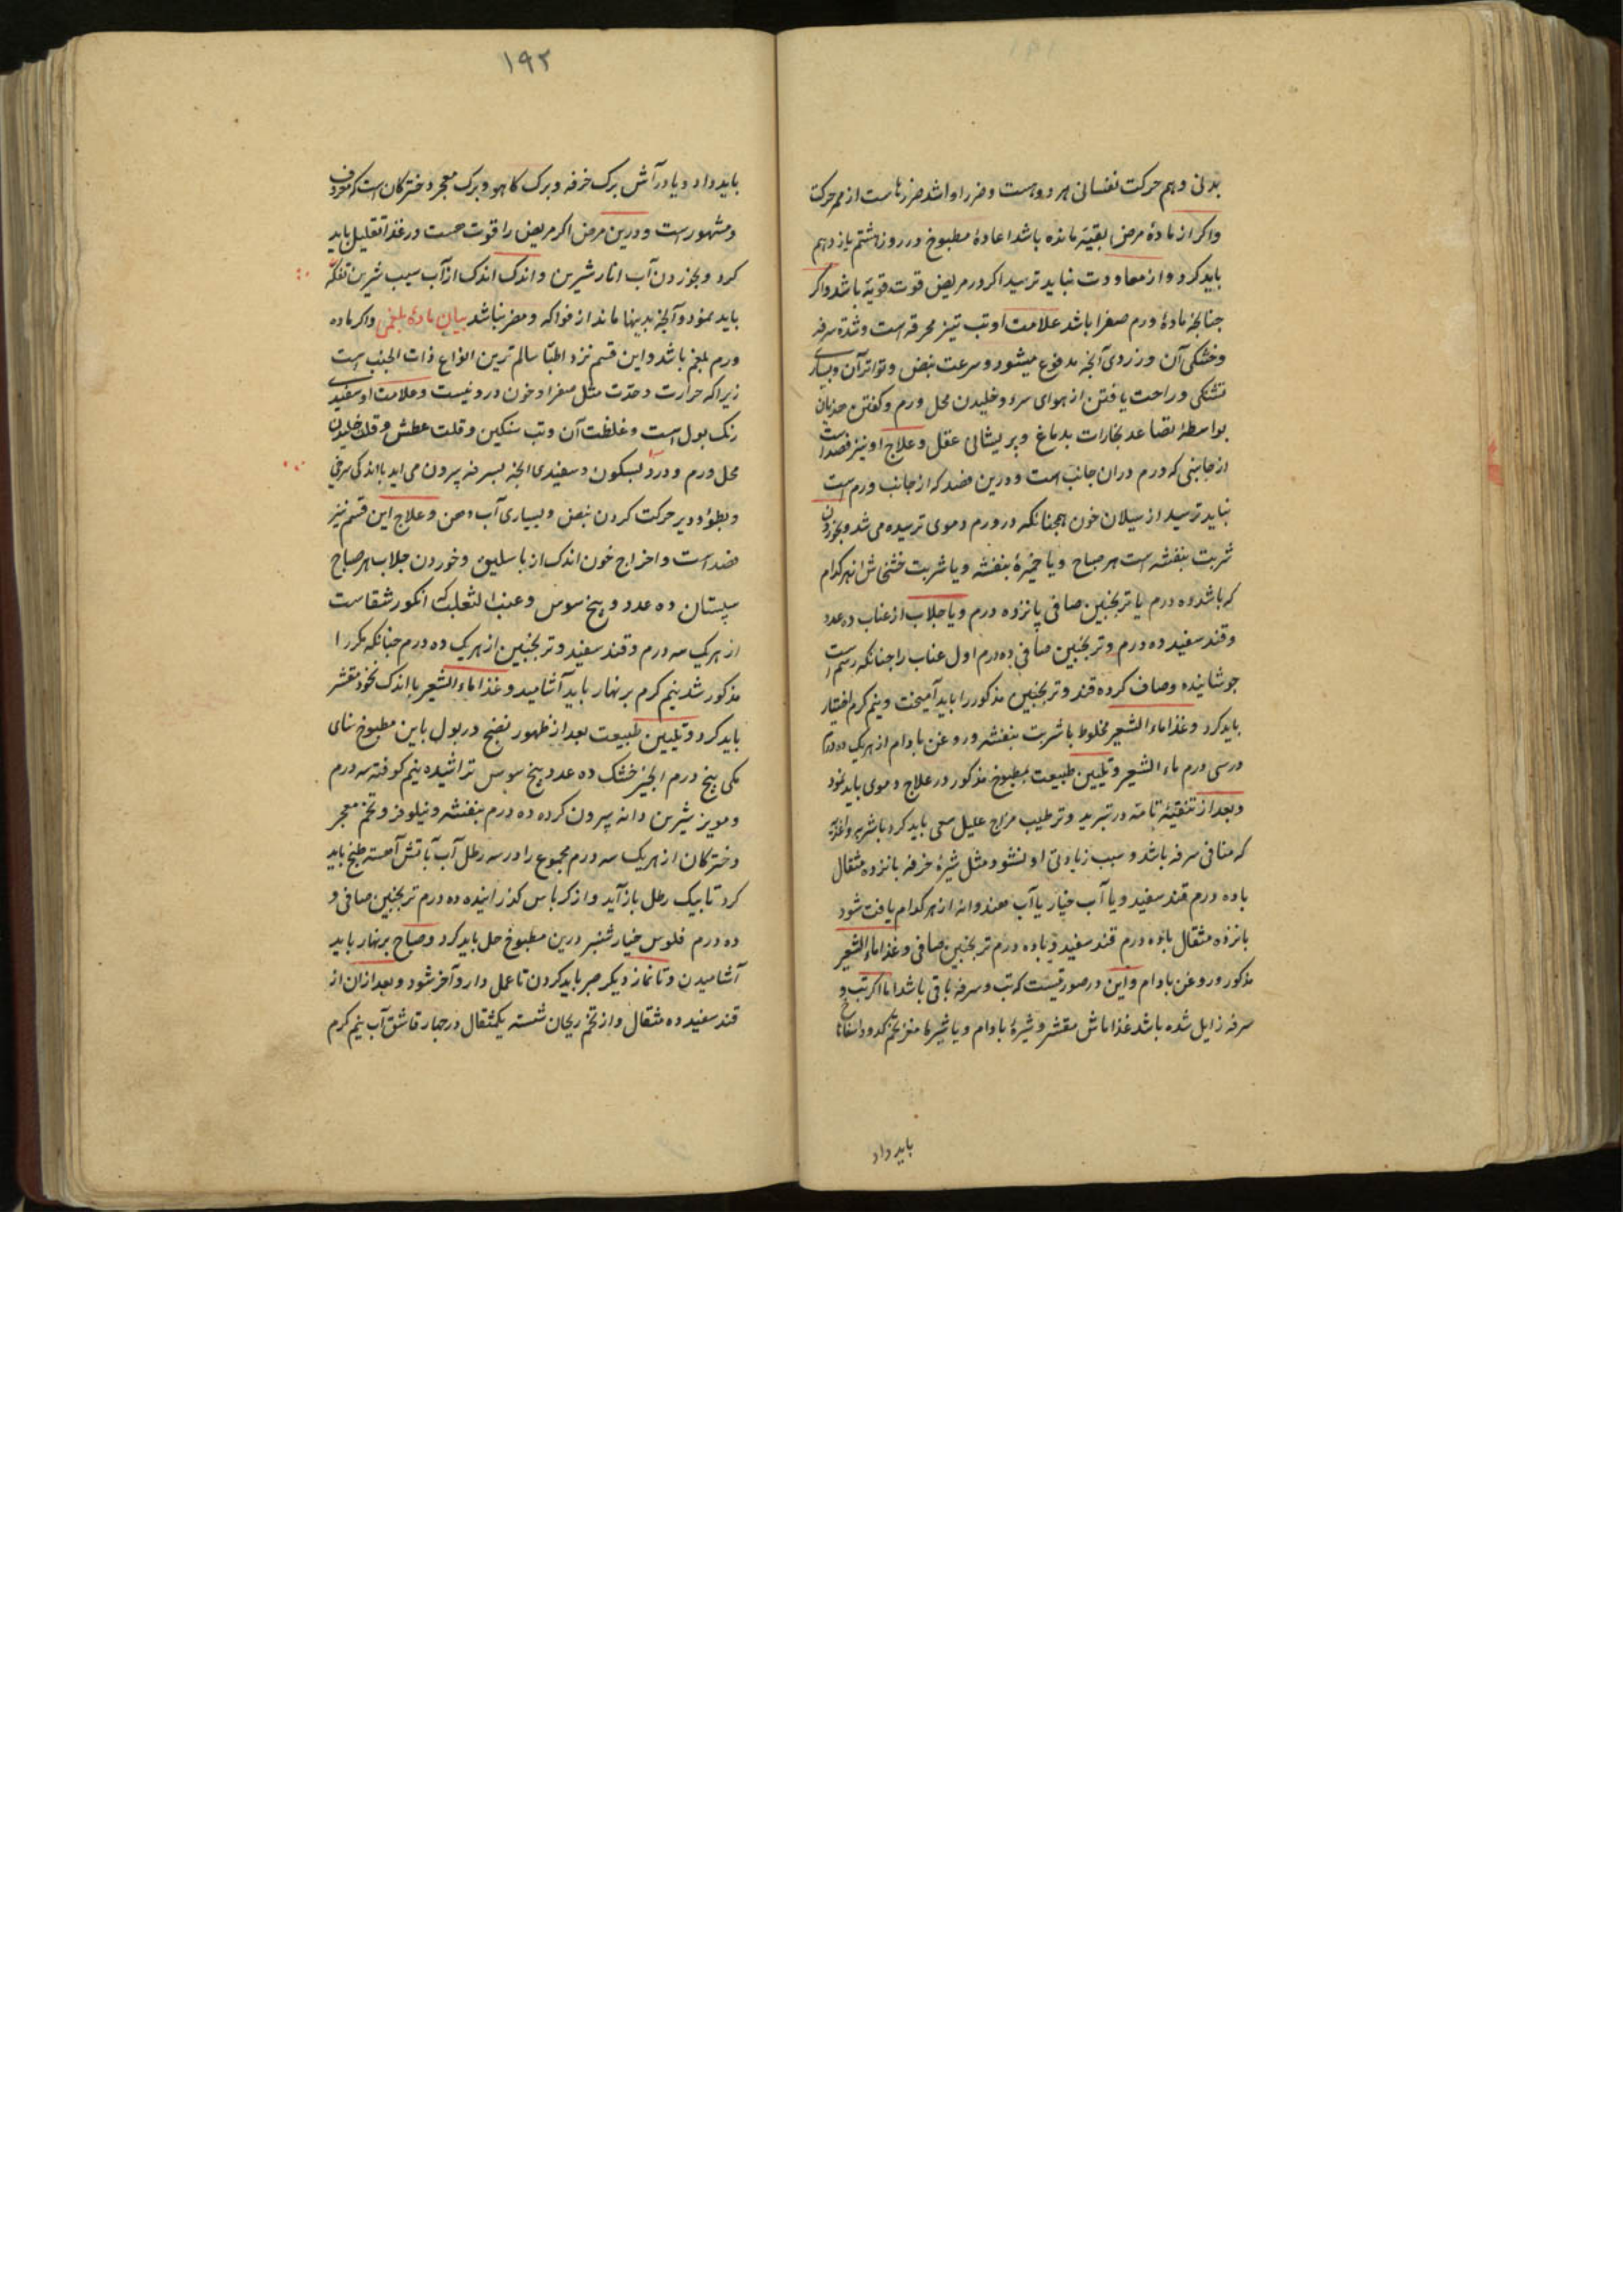 بدنی و هم حرکت نفسانی هر دو هست و ضرر او اشد ضررهاست از ممر حرکت
واکر از مادهٔ مرض بقیّه مانده باشد اعادهٔ مطبوخ در روز هشتم یازدهم
باید کرد و از معاودت نباید ترسید اکر در مریض قوت قویّه باشد واکر
جنانجه مادهٔ ورم صفرا باشد علامت او تب تیز محرقه است و شدّة سرفه
و خشکی آن و زردی آنجه مدفوع میشود و سرعت نبض و تواتر آن و بسیاری
تشنکی و راحت یافتن از هوای سرد و خلیدن محل ورم و کفتن هذیان
بواسطهٔ تصاعد بخارات بدماغ و پریشانی عقل و علاج او نیز فصد است
از جانبی که ورم دران جانب است و درین فصد که از جانب ورم است
نباید ترسید از سیلان خون همجنانکه در ورم دموی ترسیده می شد و بخوردن
شربت بنفشه است هر صباح و یا خمیرهٔ بنفشه و یا شربت خشخاش از هر کدام
که باشد ده درم با ترنجبین صافی پانزده درم و یا جلاب از عناب ده عدد
و قند سفید ده درم و ترنجبین صافی ده درم اول عناب را جنانکه رسم است
جوشانیده و صاف کرده قند و ترنجبین مذکور را باید آمیخت و نیم کرم اختیار
باید کرد و غذا ماء الشعیر مخلوط با شربت بنفشه و روغن بادام از هریک ده درم
در سی درم ماء الشعیر و تلیین طبیعت بمطبوخ مذکور در علاج دموی باید نمود
و بعد از تنقیّهٔ تامه در تبرید و ترطیب مزاج علیل سعی باید کرد باشربه و اغذیه
که منافی سرفه باشد و سبب زیادتی او نشود مثل شیرهٔ خرفه پانزده مثقال
باده درم قند سفید و یا آب خیار یا آب هندوانه از هر کدام یافت شود
پانزده مثقال باده درم قند سفید و باده درم ترنجبین صافی و غذا ماء الشعیر
مذکور و روغن بادام و این در صورتیست که تب و سرفه باقی باشد اما اکر تب و
سرفه زایل شده باشد غذا ماش مقشر و شیرهٔ بادام و یا شیرهٔ مغز تخم کدو و اسفاناخ
باید داد
۱۹۲
باید داد و یا در آش برک خرفه و برک کاهو و برک معجر دخترکان است که معروف
و مشهور است و درین مرض اکر مریض را قوت هست در غذا تقلیل باید
کرد و بخوردن آب انار شیرین و اندک اندک از آب سیب شیرین تفکّه
باید نمود و آنجه بدینها ماند از فواکه و مضر نباشد بیان مادهٔ بلغمی واکر ماده
ورم بلغم باشد و این قسم نزد اطبّا سالم ترین انواع ذات الجنب است
زیرا که حرارت و حدّت مثل صفرا و خون درو نیست و علامت او سفیدی
رنک بول است و غلظت آن و تب سنکین و قلت عطش و قلت خلیدن
محل ورم و درد بسکون و سفیدی انجه بسرفه بیرون می اید با اندکی سرخی
و بطؤ و دیر حرکت کردن نبض و بسیاری آب دهن و علاج این قسم نیز
فصد است و اخراج خون اندک از باسلیق و خوردن جلاب هر صباح
سپستان ده عدد و بیخ سوس و عنب الثعلب که انکور شقاست
از هریک سه درم و قند سفید و ترنجبین از هریک ده درم جنانکه مکررا
مذکور شد نیم کرم بر نهار باید آشامید و غذا ماء الشعیر با اندک نخود مقشر
باید کرد و تلیین طبیعت بعد از ظهور نضج در بول باین مطبوخ سنای
مکی پنج درم انجیر خشک ده عدد بیخ سوس تراشیده نیم کوفته سه درم
و مویز شیرین دانه بیرون کرده ده درم بنفشه و نیلوفر و تخم معجر
دخترکان از هریک سه درم مجموع را در سه رطل آب بآتش آهسته طبخ باید
کرد تا بیک رطل باز آید و از کرباس کذرانیده ده درم ترنجبین صافی و
ده درم فلوس خیار شنبر درین مطبوخ حل باید کرد و صباح بر نهار باید
آشامیدن و تا نماز دیکر صبر باید کردن تا عمل دارو آخر شود و بعد ازان از
قند سفید ده مثقال و از تخم ریحان شسته یکمثقال در جهار قاشق آب نیم کرم